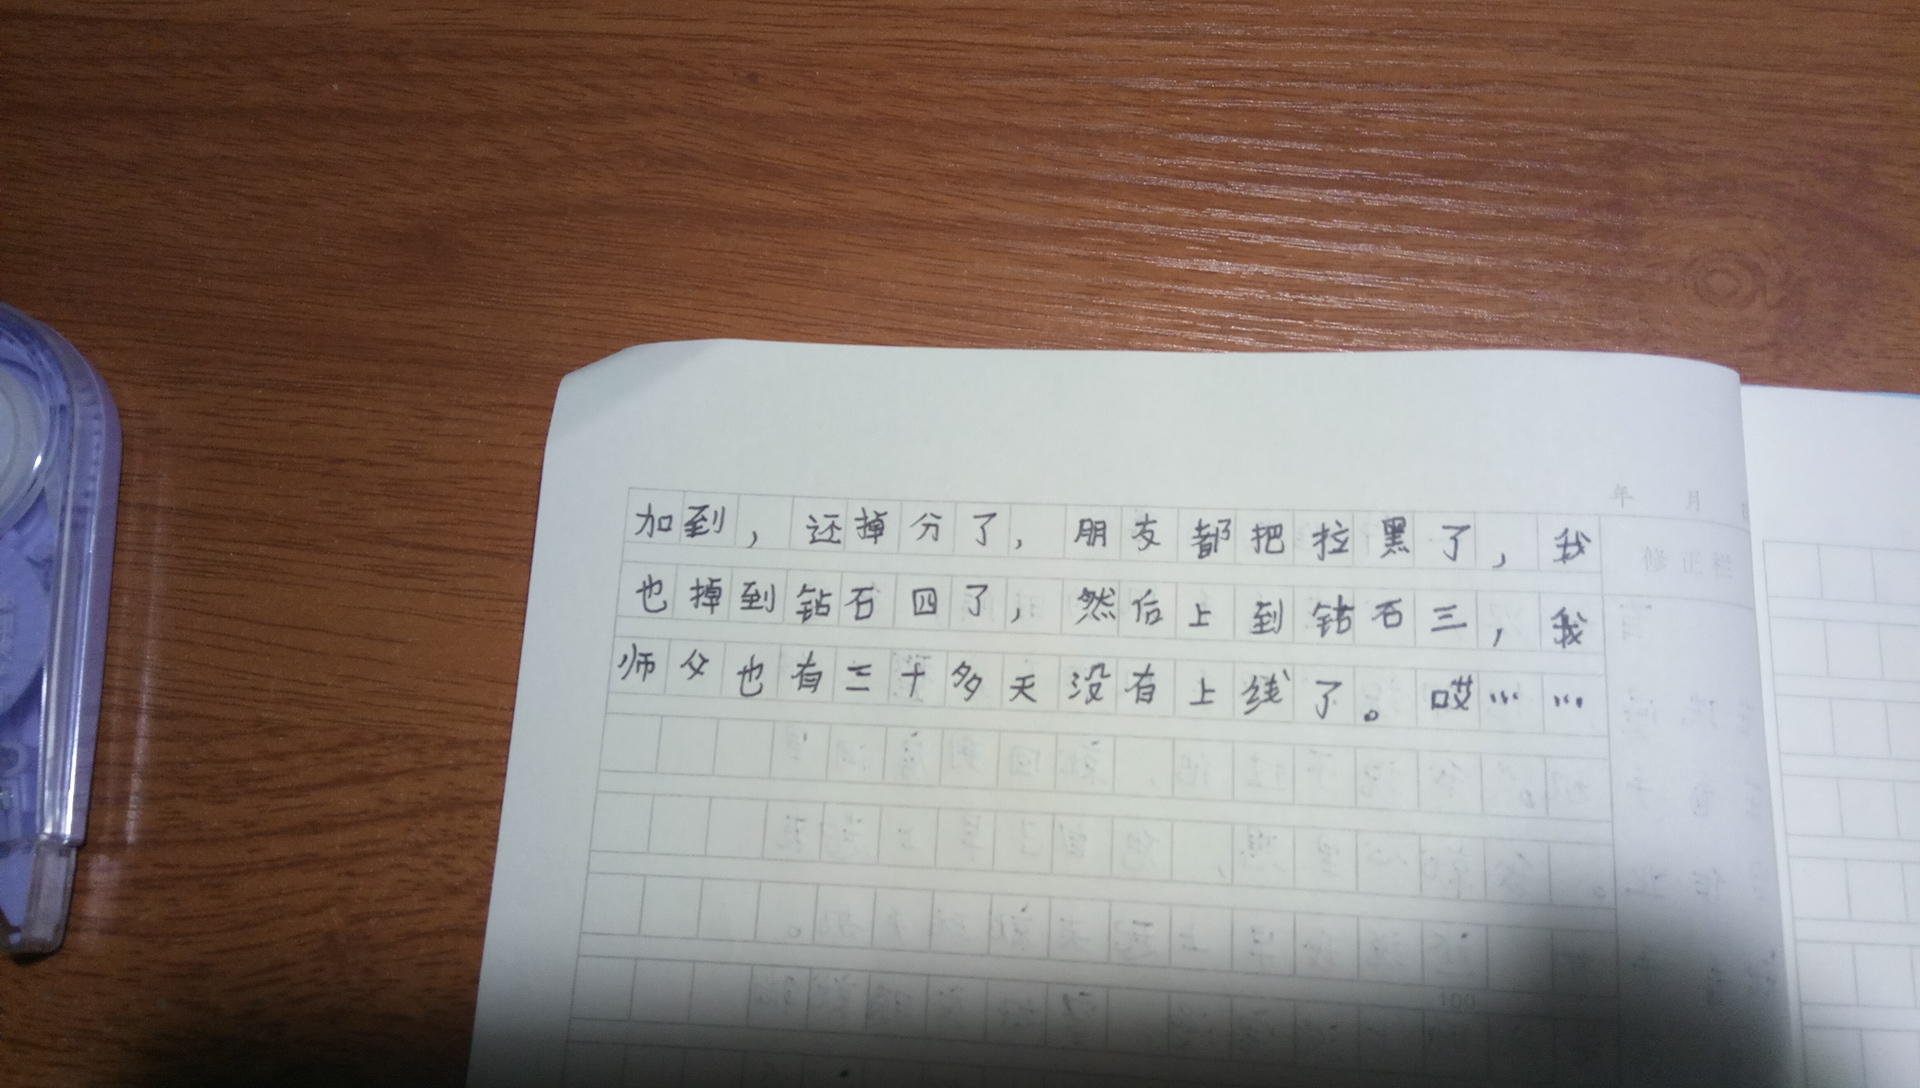 年 月
加到，还掉分了，朋友都把拉黑了，我
修正栏
也掉到钻石四了，然后上到钻石三，我
师父也有三十多天没有上线了。哎……
100